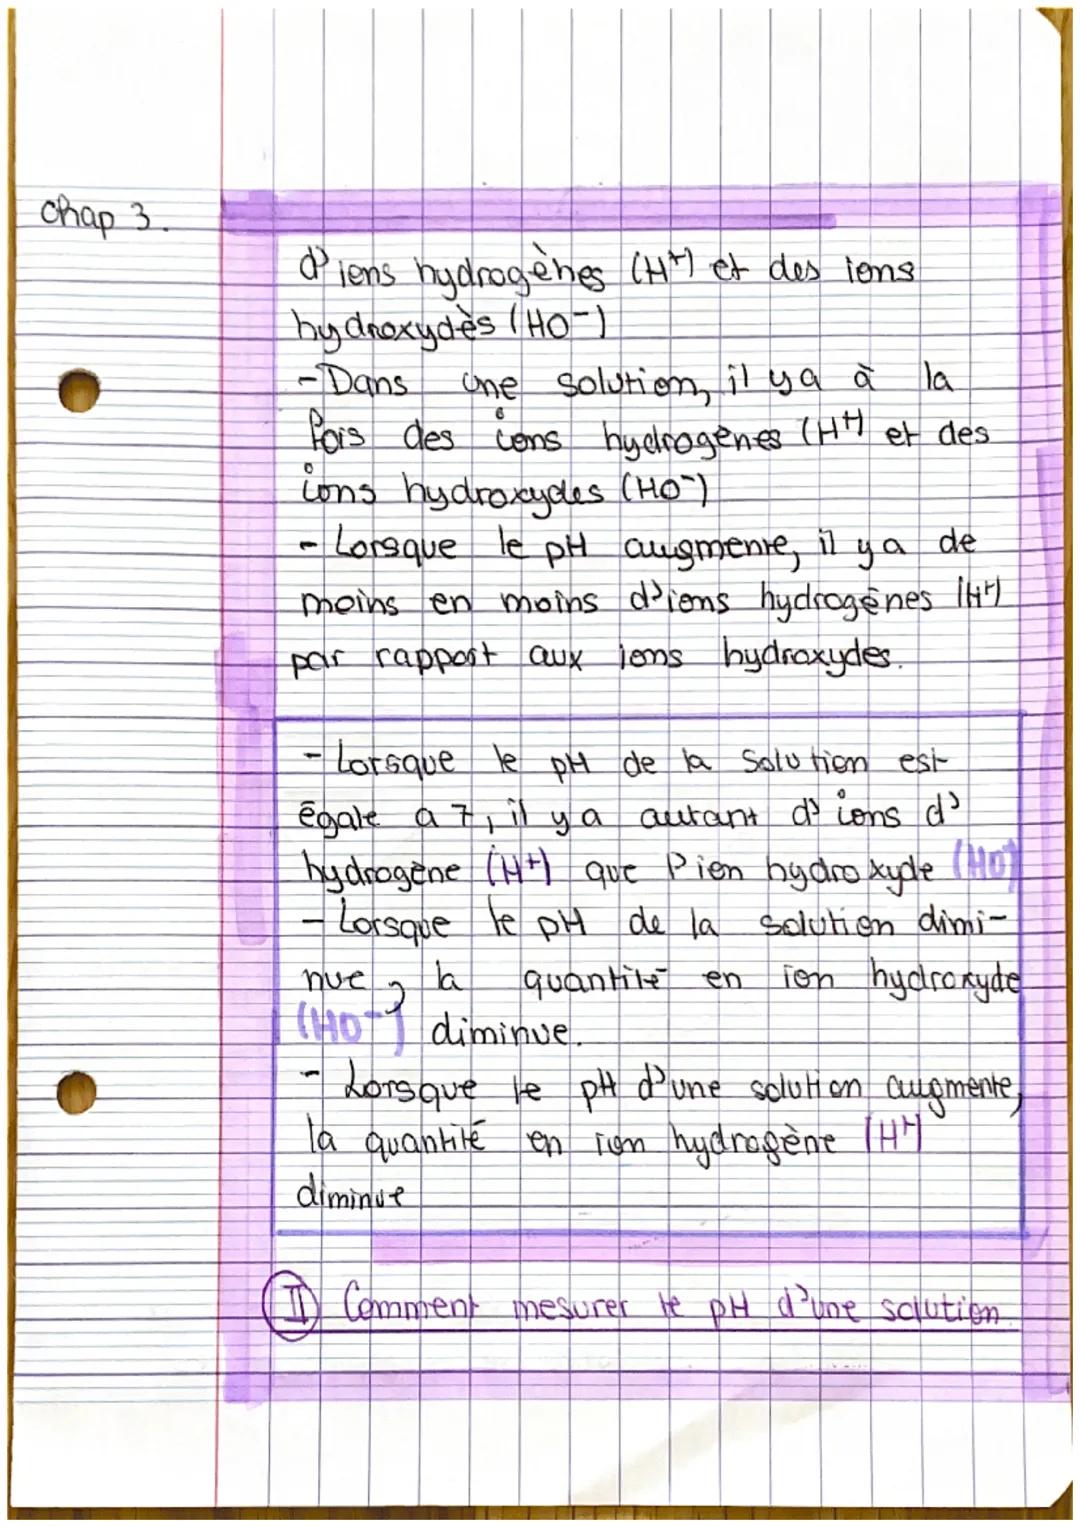 chap 3.
d'ions hydrogènes (H+) et des ions
hydroxydès (HO-)
- Dans une solution, il y a à la
fois des ions hydrogènes (H+) et des
ions hydroxydes (HO-)
- Lorsque le pH augmente, il y a de
moins en moins d'ions hydrogènes (H+)
par rapport aux ions hydroxydes.
- Lorsque le pH de la solution est
égale a 7, il y a autant d'ions d'
hydrogène (H+) que l'ion hydroxyde (HO-)
- Lorsque le pH de la solution dimi-
nue, la quantité en ion hydroxyde
(HO-) diminue.
- Lorsque le pH d'une solution augmente,
la quantité en ion hydrogène (H+)
diminue
II Comment mesurer le pH d'une solution